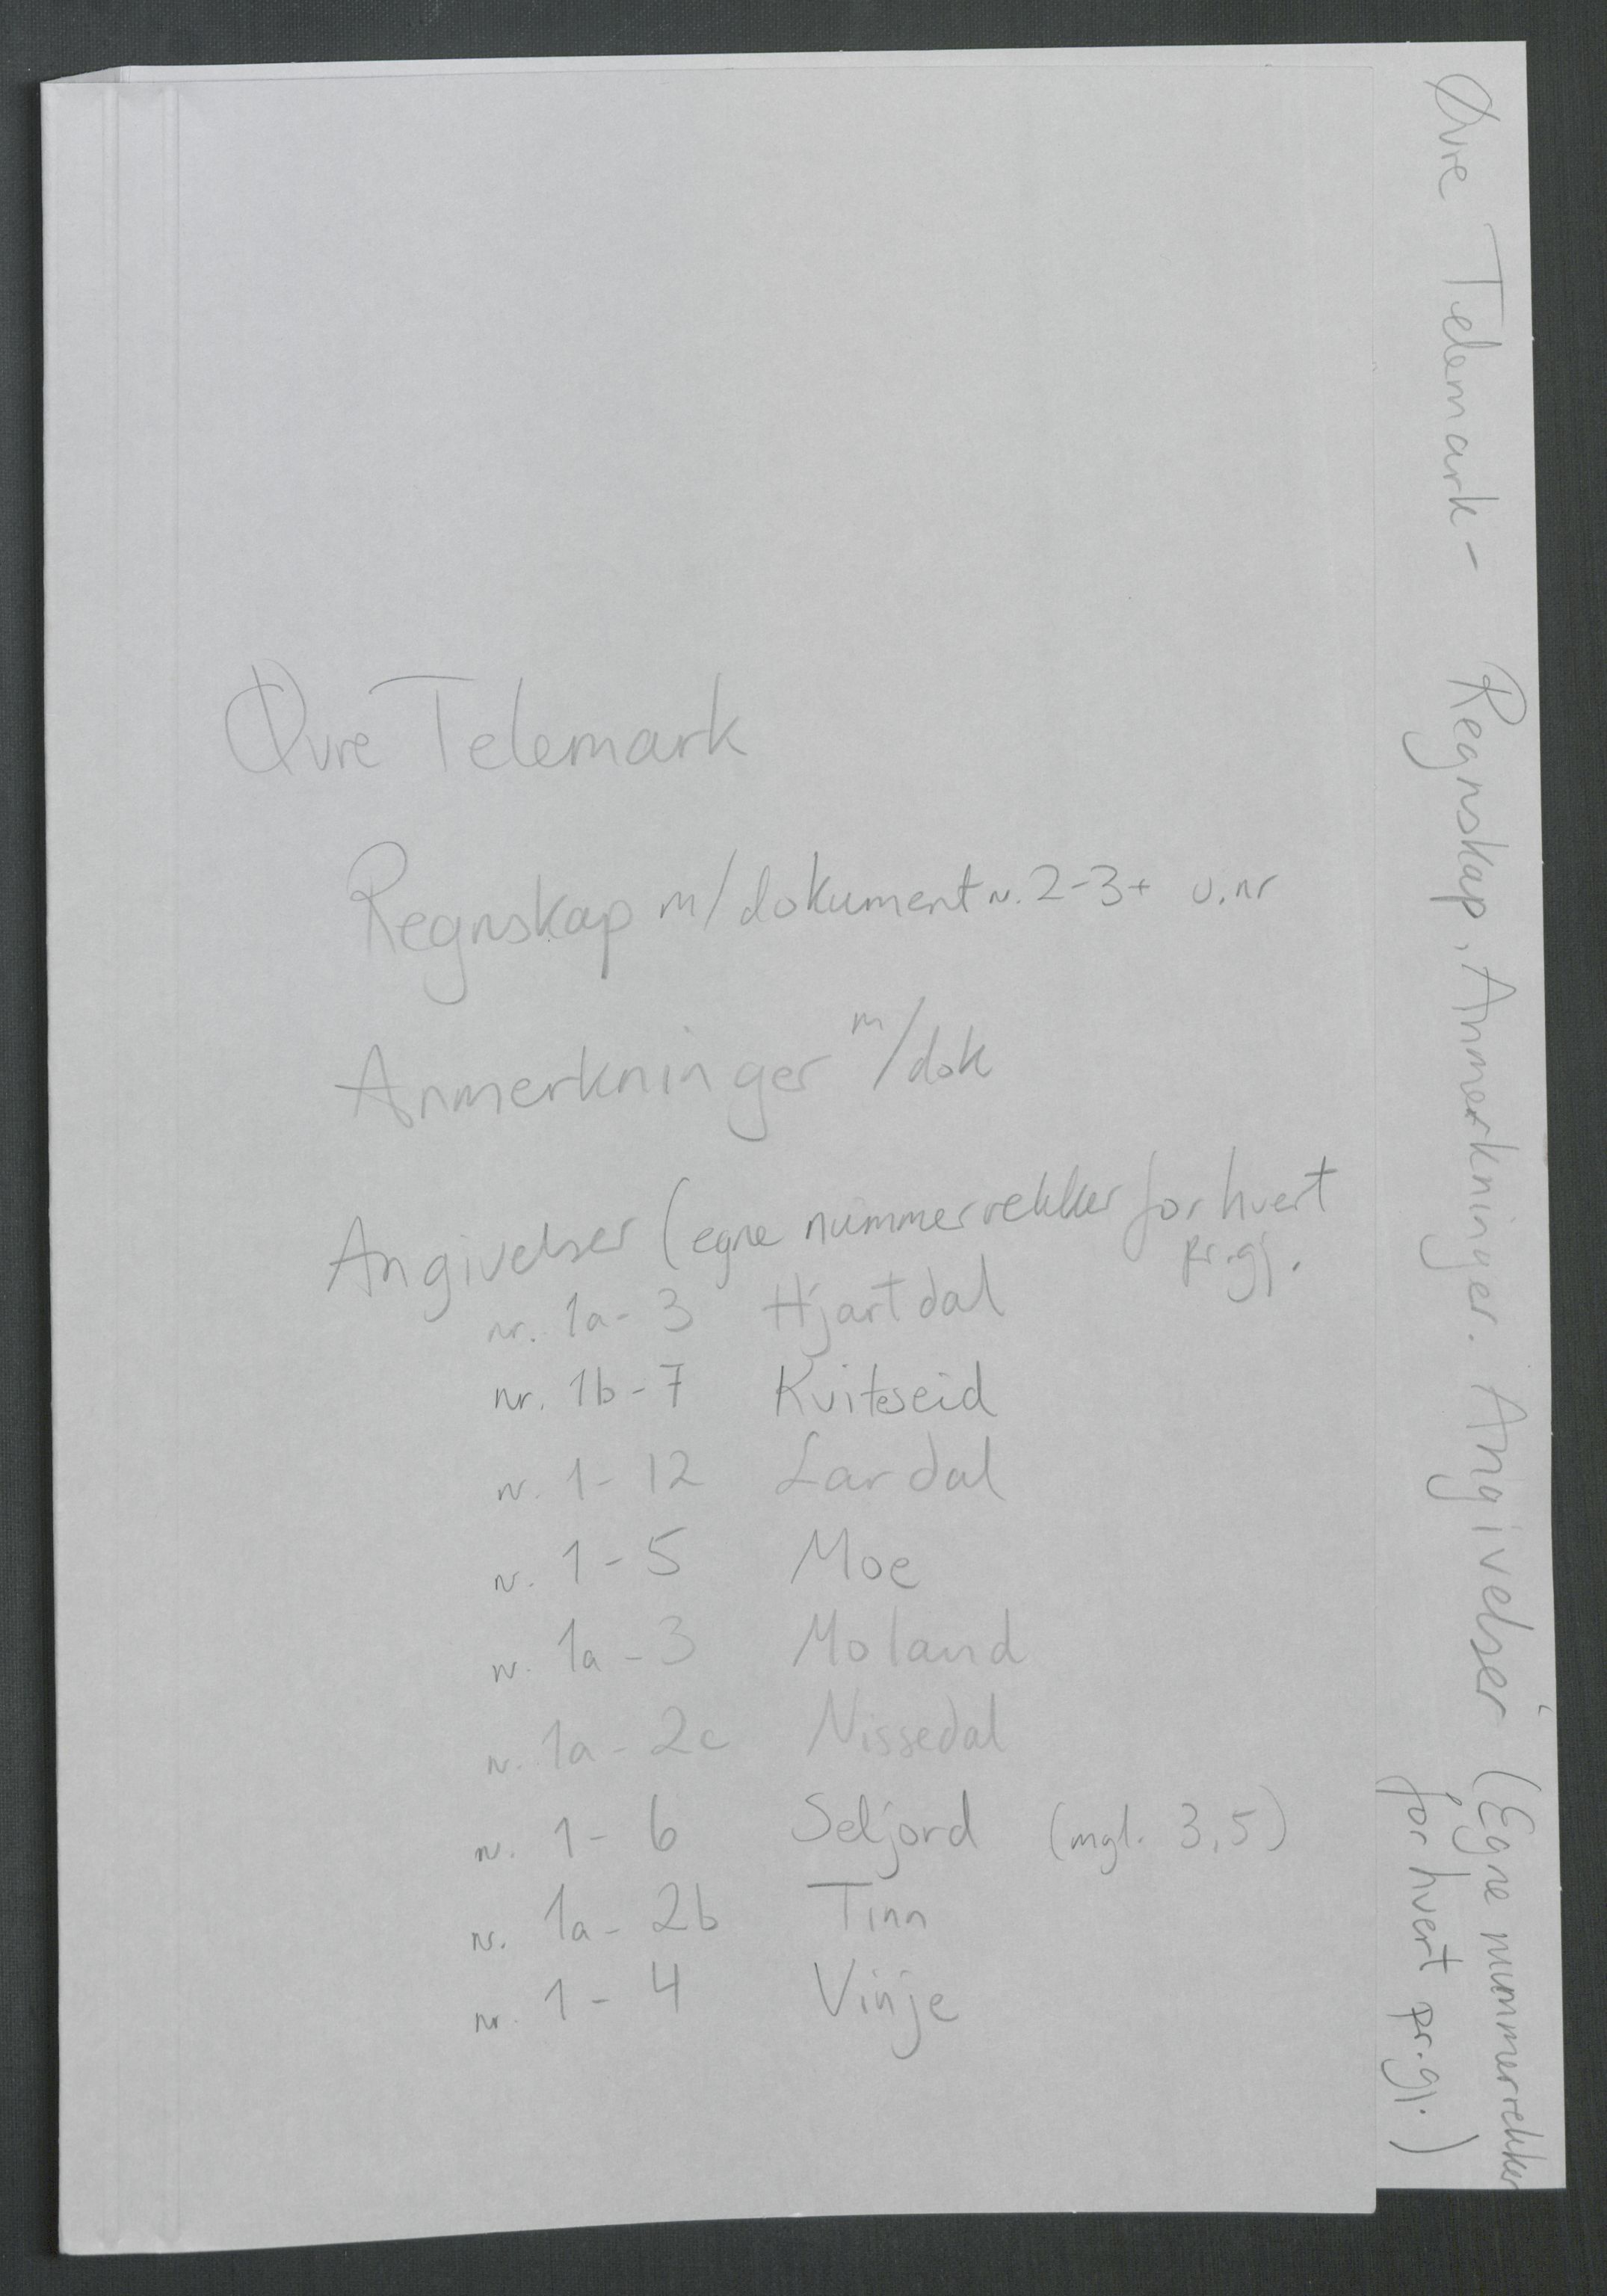 Øvre Telemark
Regnskap m/dokument nr. 2-3 + u.nr
Anmerkninger m/dok
Angivelser (egne nummerrekker for hvert
pr.gj.
nr. 1a-3 Hjartdal
nr. 1b-7 Kviteseid
nr. 1-12 Lardal
nr. 1-5 Moe
nr. 1a-3 Moland
nr. 1a-2c Nissedal
nr. 1-6 Seljord (mgl. 3,5)
nr. 1a-2b Tinn
nr. 1-4 Vinje
Øvre Telemark - Regnskap, Anmerkninger. Angivelser (Egne nummerrekker
for hvert pr.gj.)